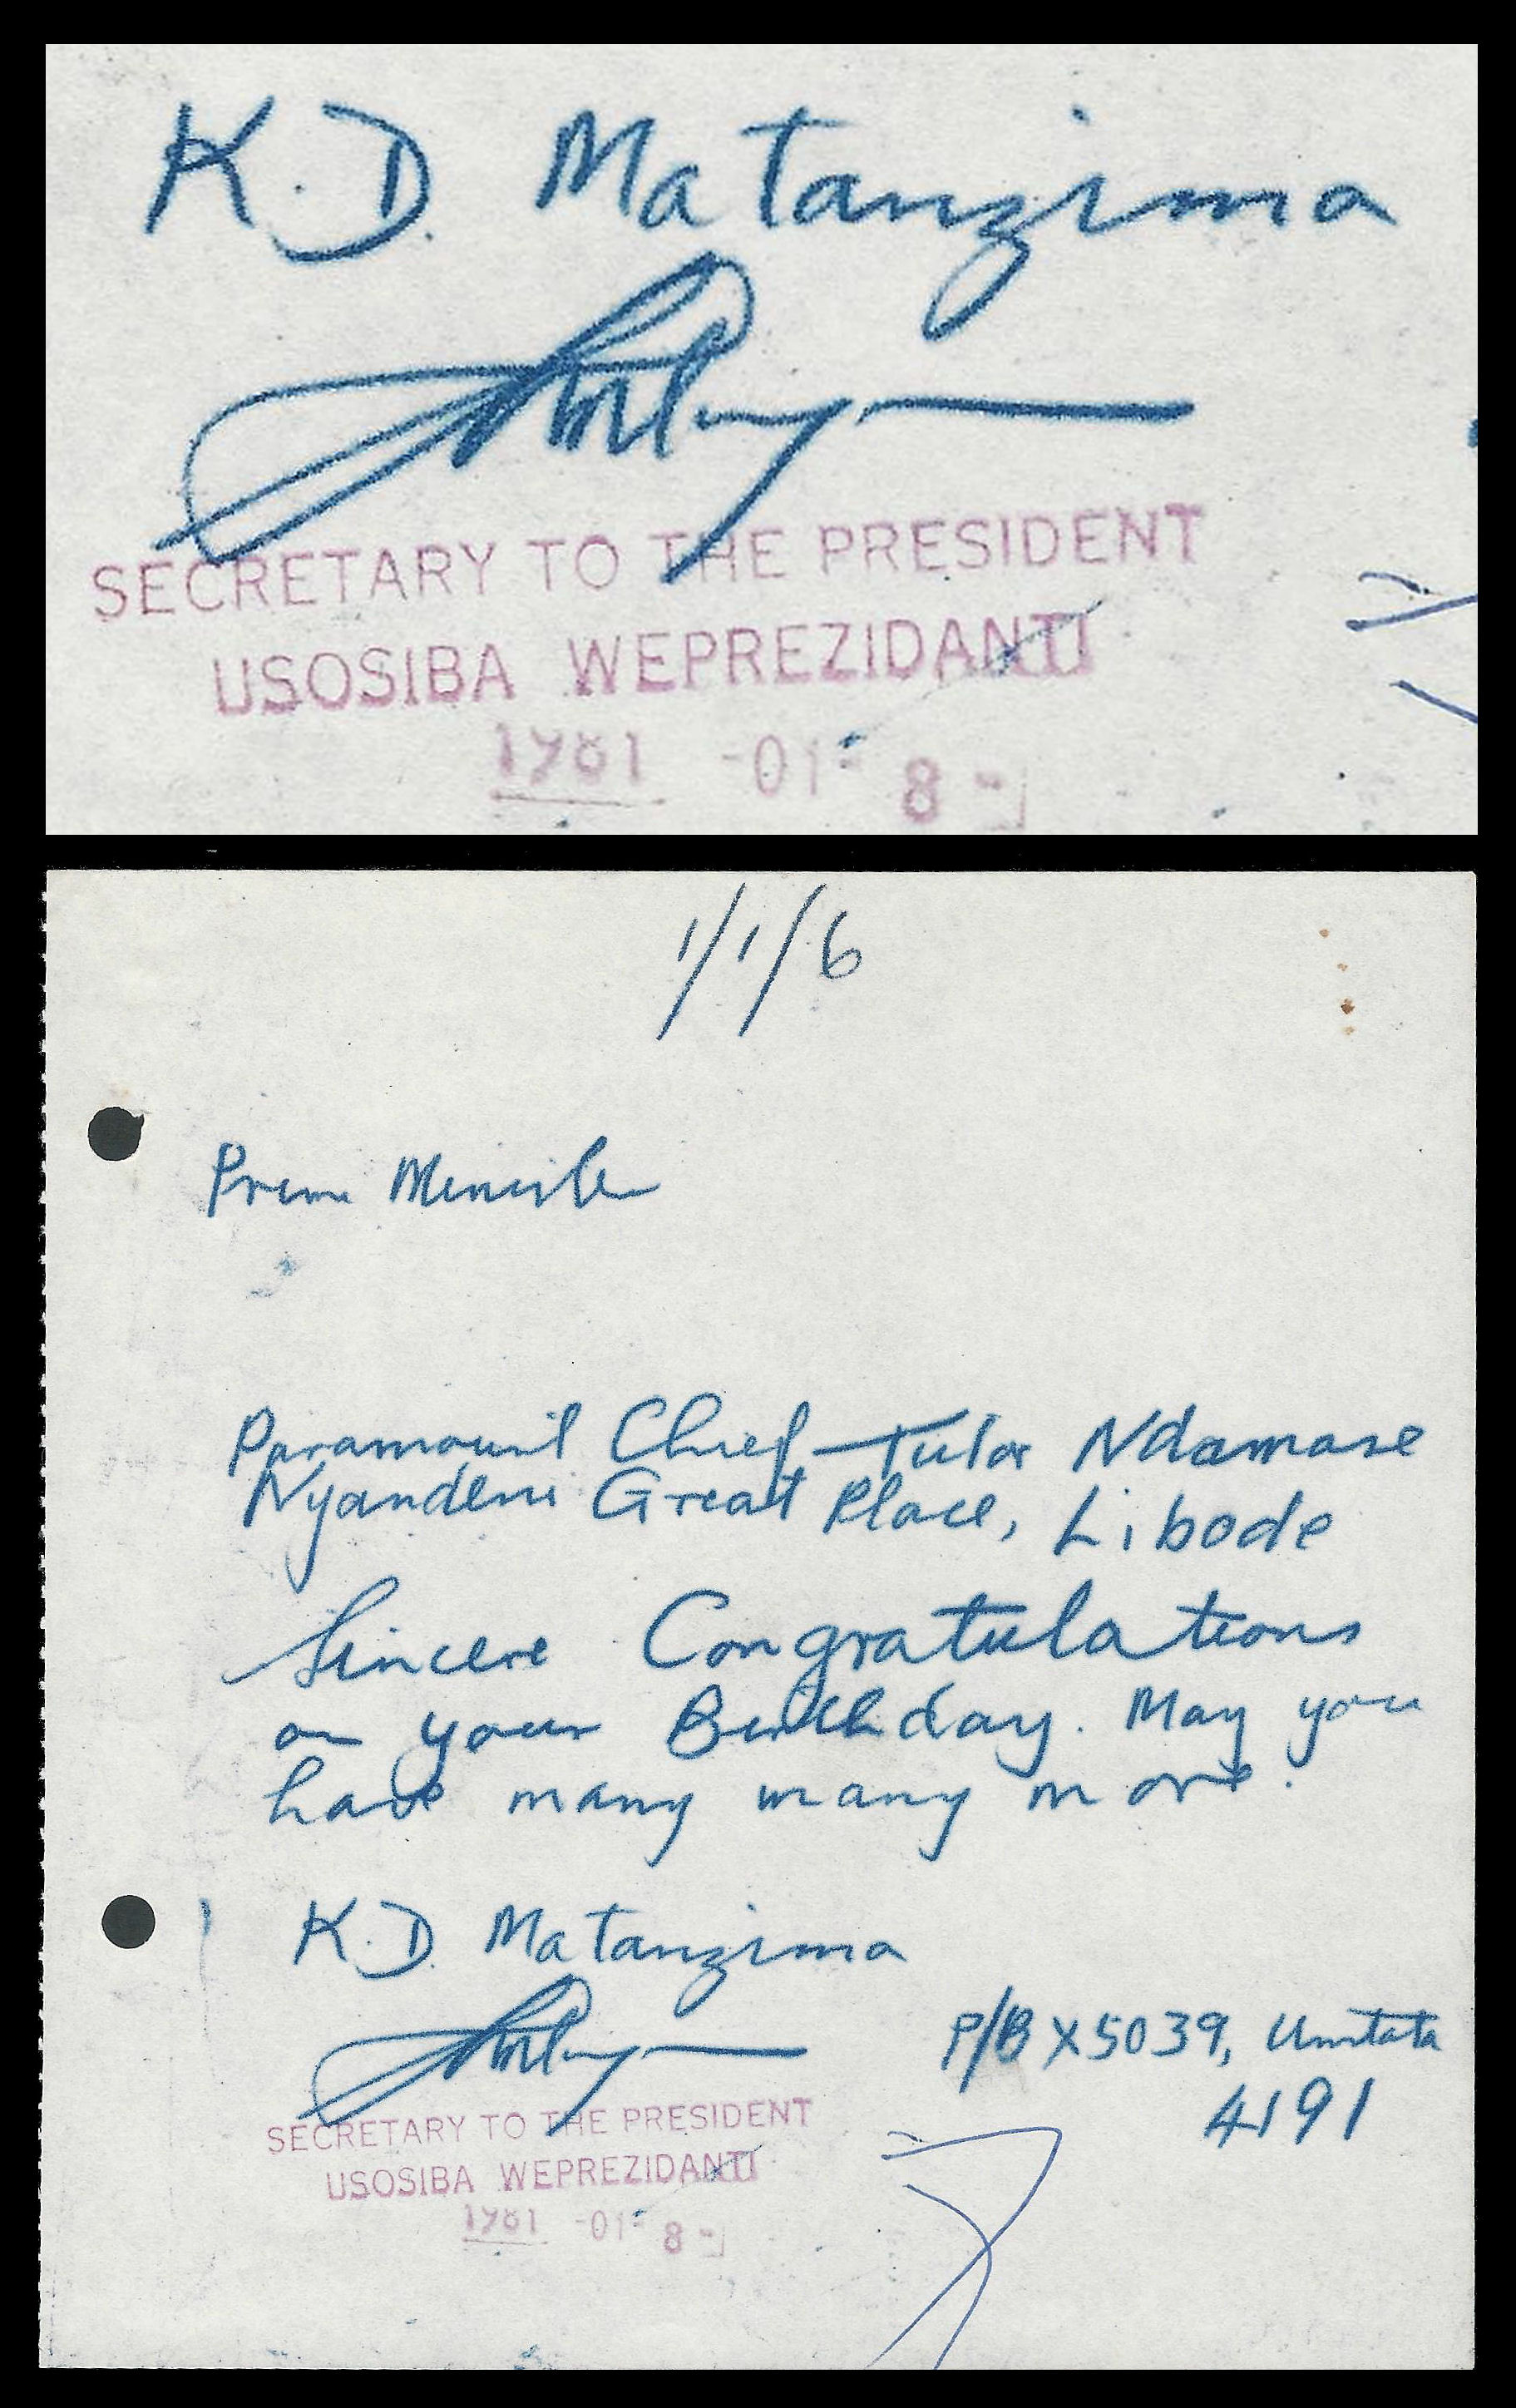 K.D. Matanzima
SECRETARY TO THE PRESIDENT
USOSIBA WEPREZIDANTI
1981 -01- 8
1/1/6
Prime Minister
Paramount Chief Tutor Ndamase
Nyandeni Great Place, Libode
Sincere Congratulations
on your Birthday. May you
have many many more.
K.D. Matanzima
P/B X5039, Umtata
4191
SECRETARY TO THE PRESIDENT
USOSIBA WEPREZIDANTI
1981 -01- 8